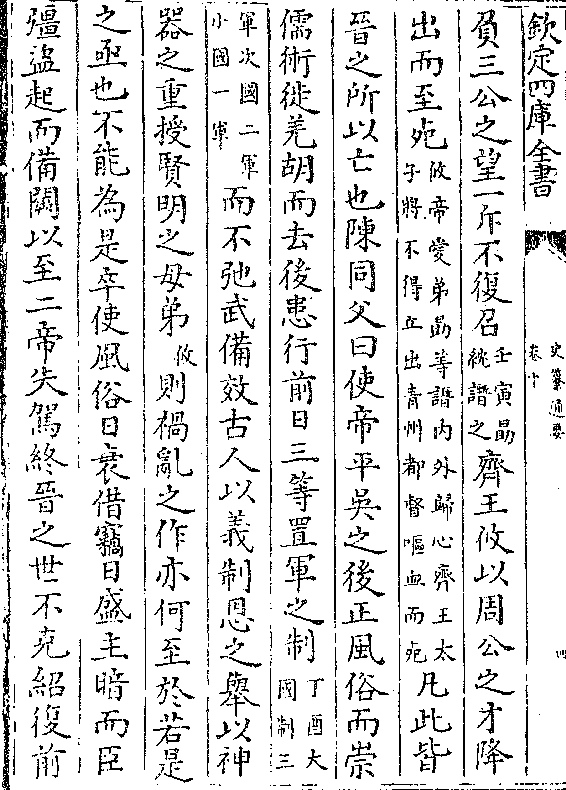 欽定四庫全書
史纂通要
卷十
四
負三公之望一斥不復召壬寅勗紞譖之齊王攸以周公之才降
出而至死攸帝愛弟勗等譖内外歸心齊王太子將不得立出青州都督嘔血而死凡此皆
晉之所以亡也陳同父曰使帝平吳之後正風俗而崇
儒術徙羌胡而去後患行前日三等置軍之制丁酉大國制三
軍次國二軍小國一軍而不弛武備效古人以義制恩之舉以神
器之重授賢明之母弟攸則禍亂之作亦何至於若是
之亟也不能為是卒使風俗日衰借竊日盛主暗而臣
彊盜起而備闕以至二帝失駕終晉之世不克紹復前